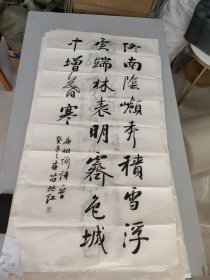 終南陰嶺秀積雪浮
雲端林表明霽色城
中增暮寒
唐祖詠詩